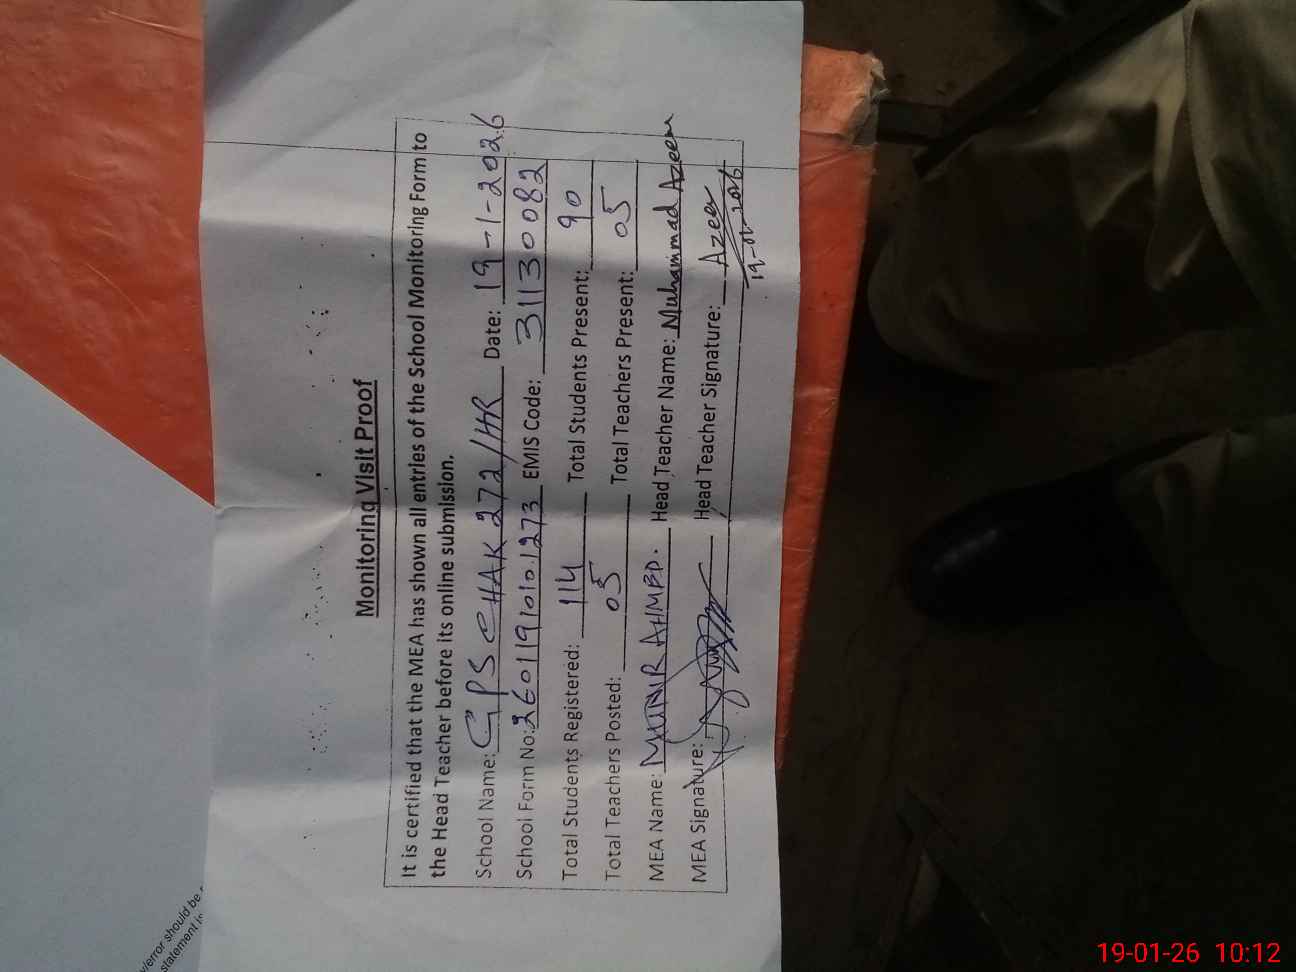 Monitoring Visit Proof
It is certified that the MEA has shown all entries of the School Monitoring Form to
the Head Teacher before its online submission.
School Name: GPS CHAK 272/HR Date: 19-1-2026
School Form No: 26011910101273 EMIS Code: 31130082
Total Students Registered: 114 Total Students Present: 90
Total Teachers Posted: 05 Total Teachers Present: 05
MEA Name: MUNIR AHMED. Head Teacher Name: Muhammad Azeem
MEA Signature: Head Teacher Signature: Azeem
19-01-2026
/error should be
statement is
19-01-26 10:12